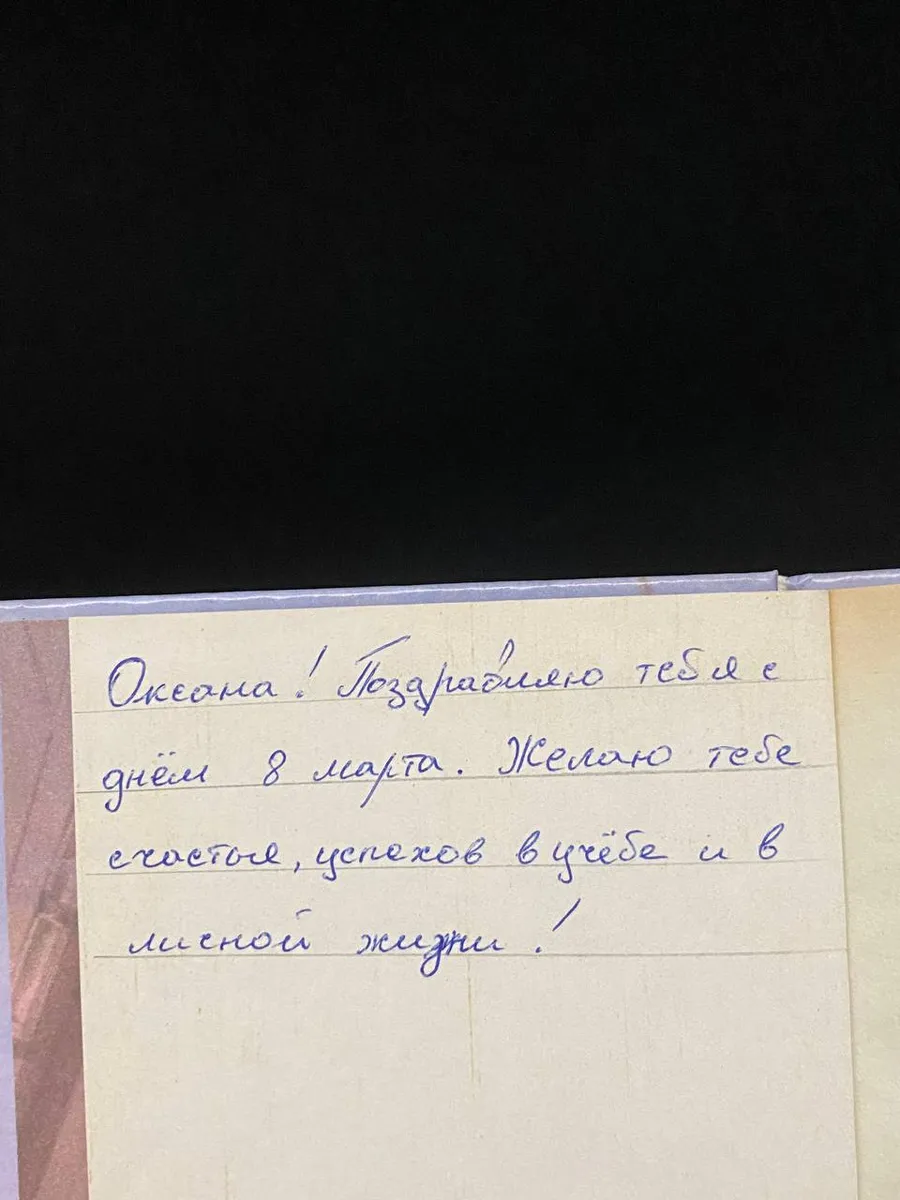 Оксана! Поздравляю тебя с
днём 8 марта. Желаю тебе
счастья, успехов в учёбе и в
личной жизни!